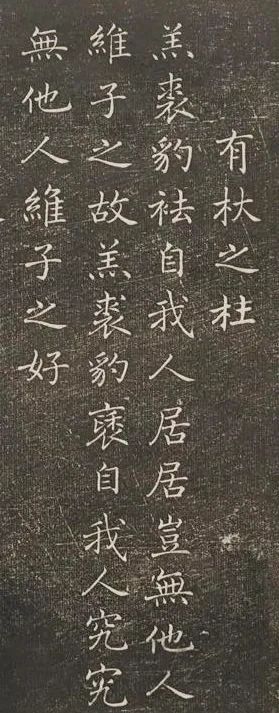 有杕之柱
羔裘豹袪自我人居居豈無他人
維子之故羔裘豹褎自我人究究
無他人維子之好